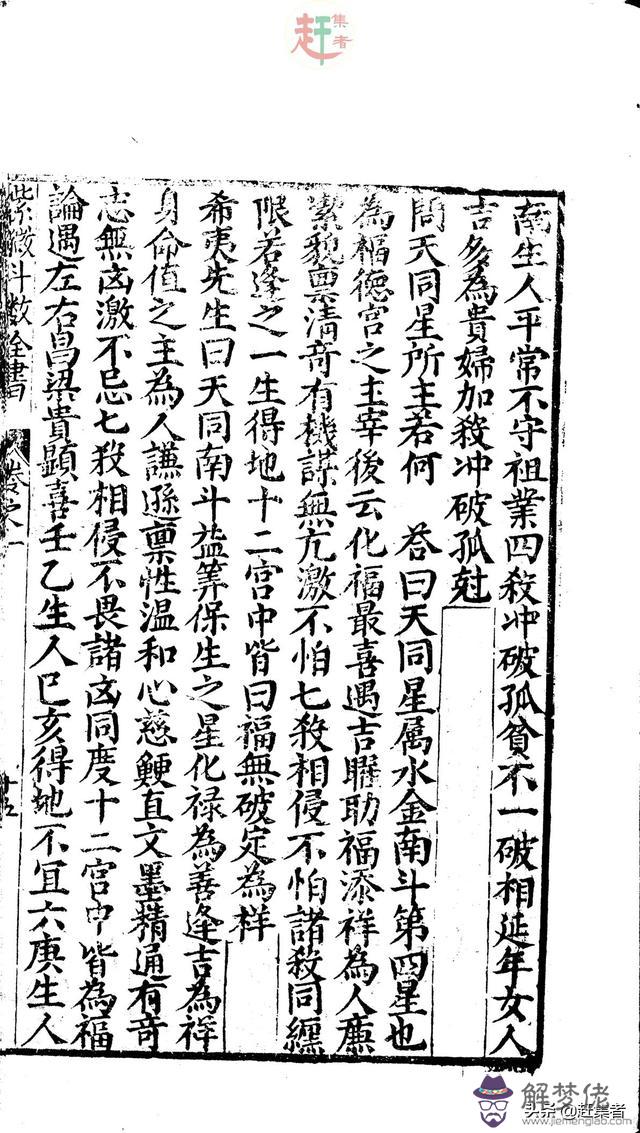 集者
赶
南生人平常不守祖業四殺冲破孤貧不一破相延年女人
吉多為貴婦加殺冲破孤尅
問天同星所主若何 荅曰天同星属水金南斗第四星也
為福德宫之主宰後云化福最喜遇吉曜助福添祥為人廉
潔貌禀清竒有機謀無亢激不怕七殺相侵不怕諸殺同纏
限若逢之一生得地十二宫中皆曰福無破定為样
希夷先生曰天同南斗益筭保生之星化禄為善逢吉為祥
身命值之主為人謙遜禀性温和心慈鯁直文墨精通有竒
志無凶激不忌七殺相侵不畏諸凶同度十二宫中皆為福
論遇左右昌梁貴顯喜壬乙生人巳亥得地不宜六庚生人
紫微斗数全書 卷之一 十五
解梦佬
www.jiemenglao.com
头条@赶集者